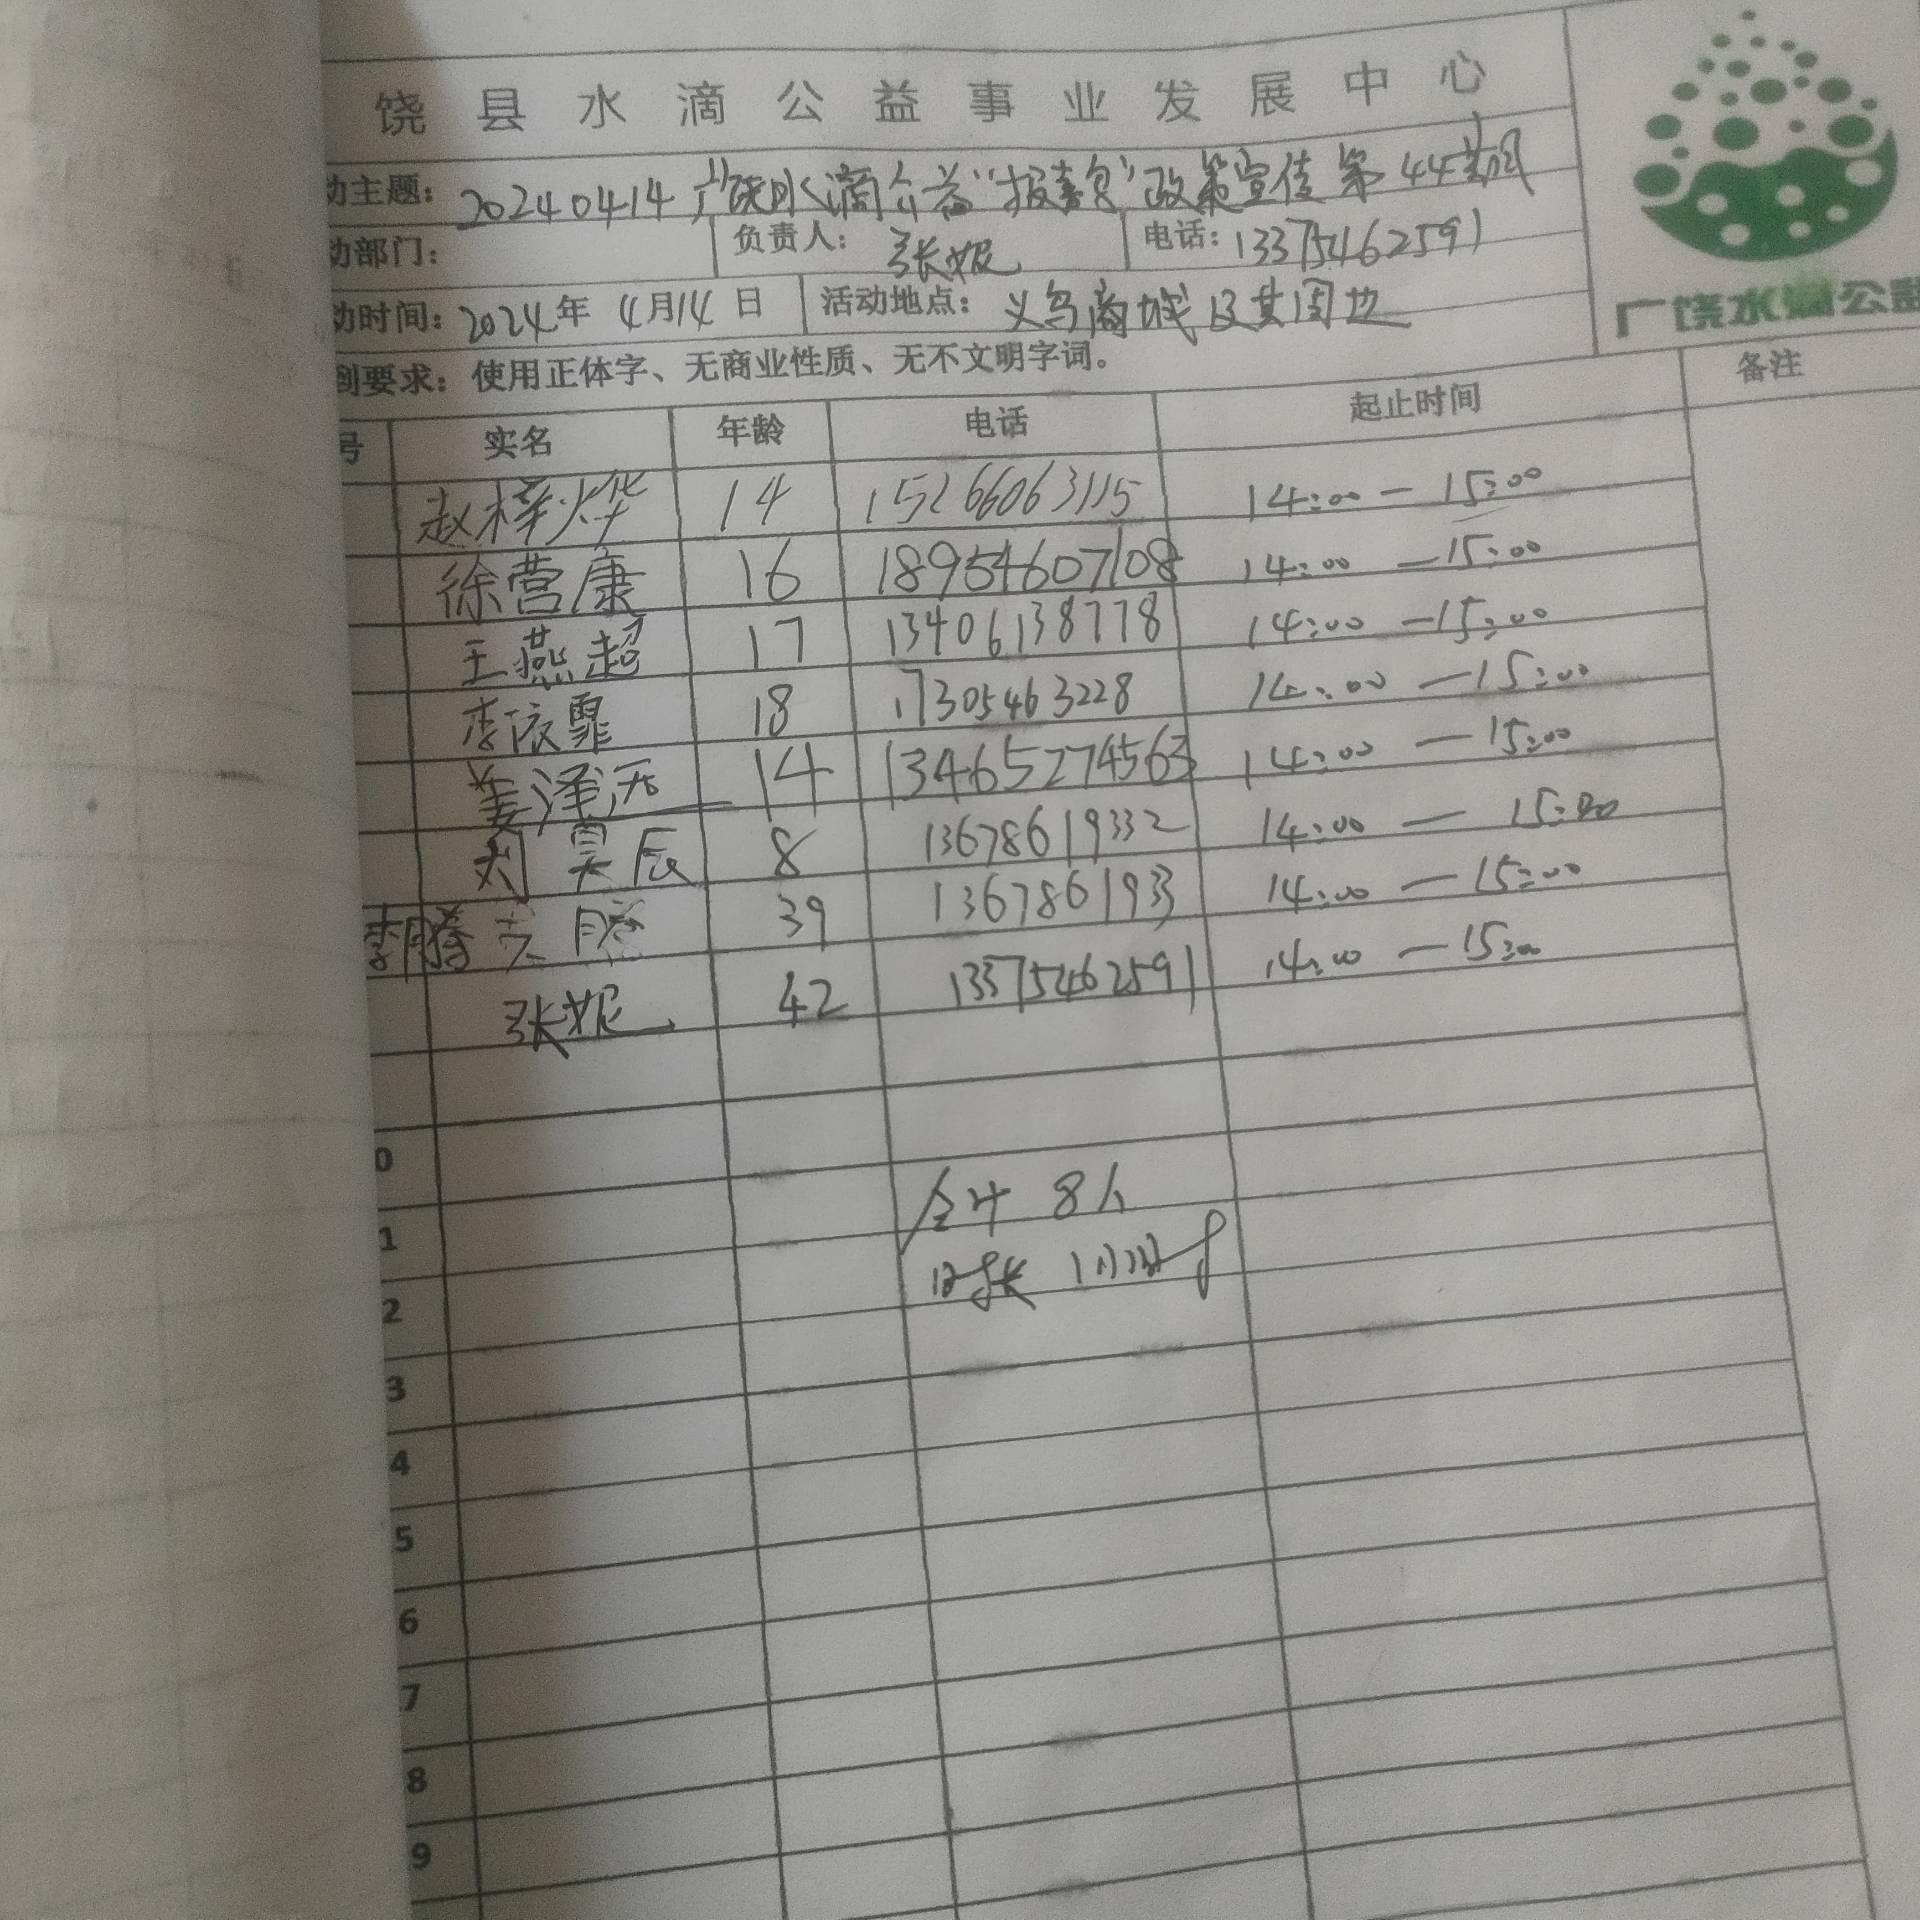 饶县水滴公益事业发展中心
动主题：20240414广饶水滴公益“报寿食”政策宣传第44期
动部门： 负责人：张妮 电话：13375462591
动时间：2024年4月14日 活动地点：义乌商城及其周边
到要求：使用正体字、无商业性质、无不文明字词。
广饶水滴公益
号 实名 年龄 电话 起止时间 备注
赵梓烨 14 15266063115 14:00-15:00
徐营康 16 18954607108 14:00-15:00
王燕超 17 13406138778 14:00-15:00
李依霏 18 17305463228 14:00-15:00
姜泽元 14 13465274563 14:00-15:00
刘昊辰 8 13678619332 14:00-15:00
李腾 39 1367861933 14:00-15:00
张妮 42 13375462591 14:00-15:00
0
合计 8人
1
时长 1小时
2
3
4
5
6
7
8
9